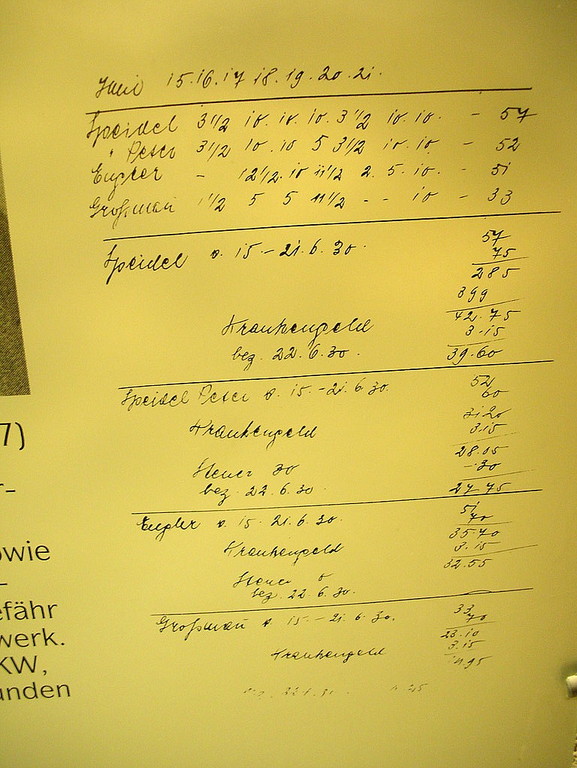 Juni 15. 16. 17 18. 19. 20. 21.
Speidel 3 1/2 10. 10. 10. 3 1/2 10. 10. - 57
" Peter 3 1/2 10. 10 5 3 1/2 10. 10. - 52
Eugler - 12 1/2. 10 11 1/2 2. 5. 10. - 51
Großman 1 1/2 5 5 11 1/2 - - 10 - 33
Speidel v. 15 - 21. 6. 30. 57
75
285
399
42.75
Krankengeld 3.15
bez. 22.6.30. 39.60
Speidel Peter v. 15. - 21. 6. 30. 52
60
31.20
Krankengeld 3.15
28.05
Steuer 30 -30
bez. 22.6.30. 27.75
Eugler v. 15. 21. 6. 30. 51
70
35.70
Krankengeld 3.15
32.55
Steuer
bez. 22.6.30.
Großman v. 15. - 21. 6. 30. 33
70
23.10
Krankengeld 3.15
19.95
7)
owie
efähr
werk.
KW,
unden